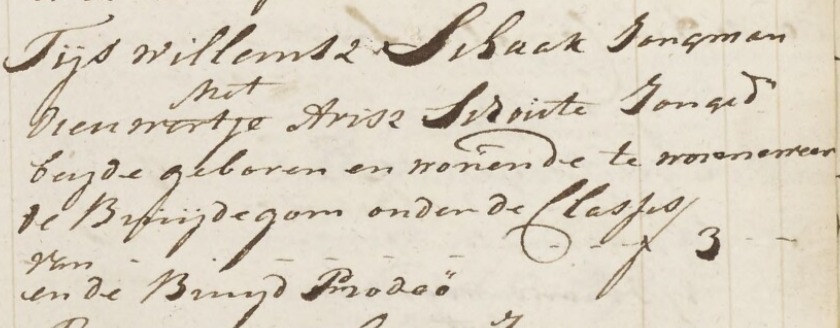 Tijs willemsz Schaak Jongman
Met
Dieuwertje Arisz Schoute Jonged
beyde geboren en wonende te wormerveer
de Bruijdegom onder de Classis
van - - - - - - - f 3 - -
en de Bruyd Prodeo